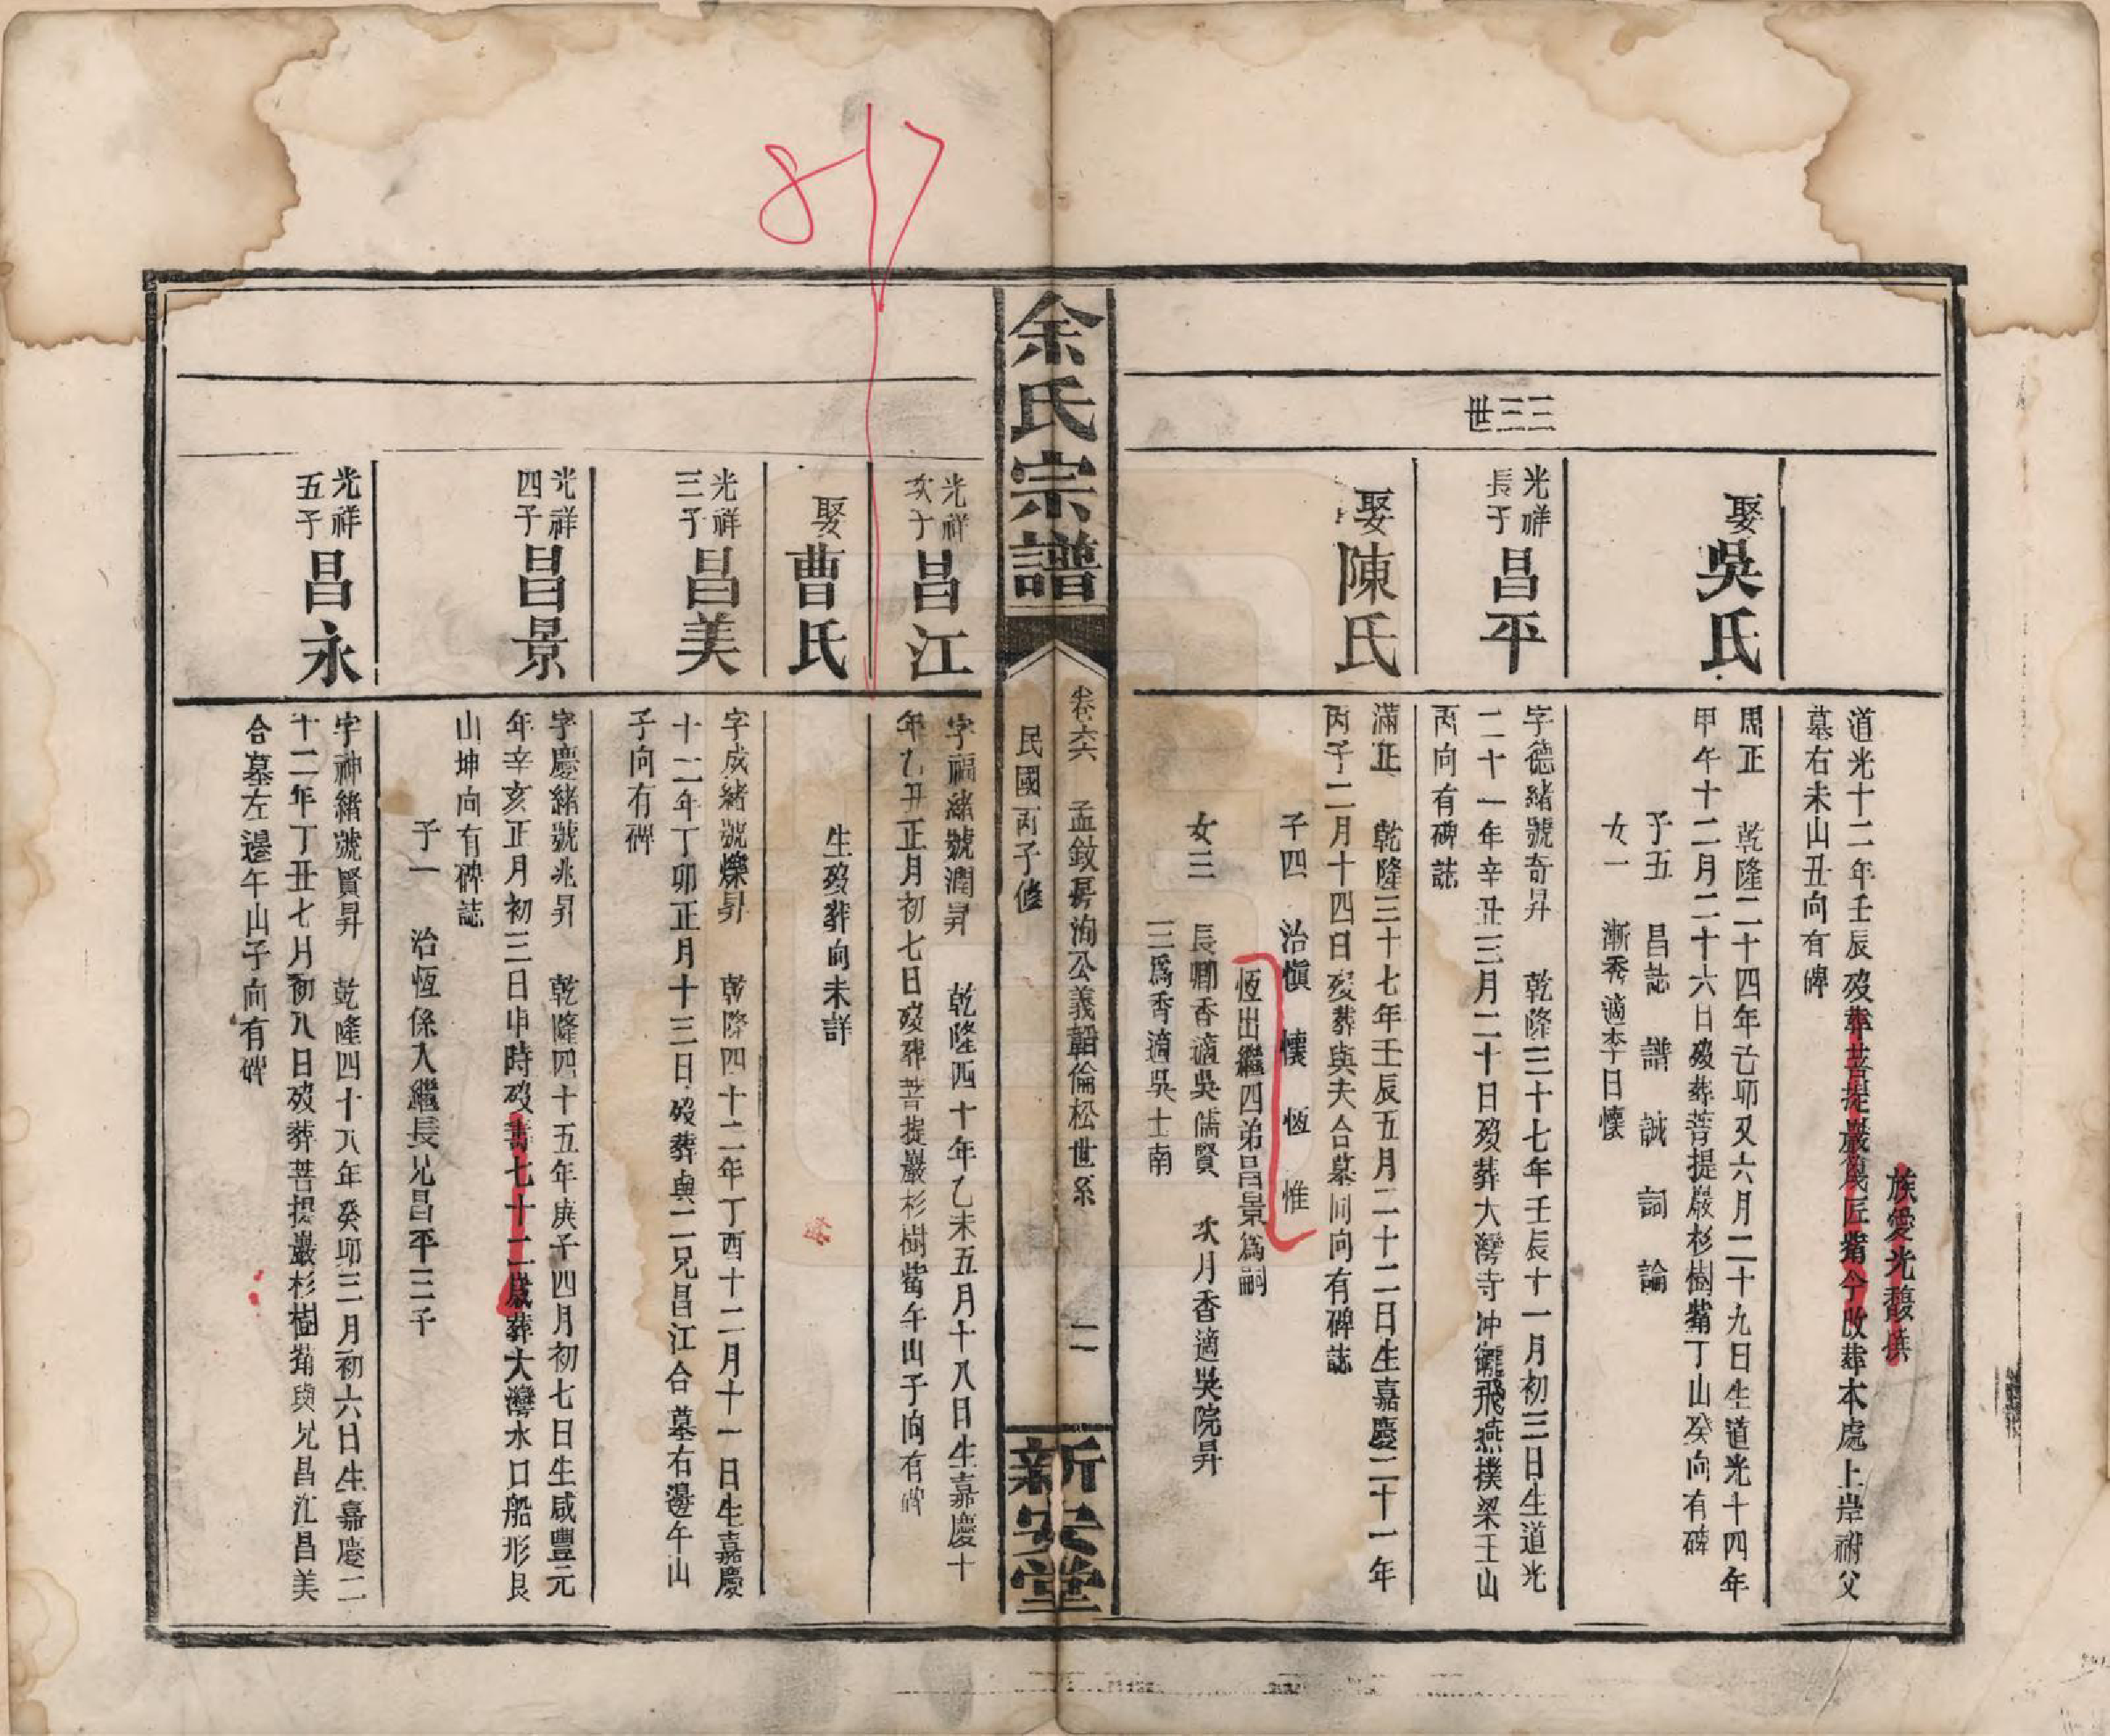 道光十二年壬辰歿葬菩提巖篾匠觜今改葬本處上岸祔父
墓右未山丑向有碑
族愛光馥撰
三三世
娶吳氏
周正 乾隆二十四年己卯又六月二十九日生道光十四年
甲午十二月二十六日歿葬菩提巖杉樹觜丁山癸向有碑
子五 昌誌 譜 誠 詞 論
女一 漸秀適李日懷
光祥長子昌平
字德緒號奇昇 乾隆三十七年壬辰十一月初三日生道光
二十一年辛丑三月二十日歿葬大灣寺冲衝飛燕撲梁壬山
丙向有碑誌
娶陳氏
滿正 乾隆三十七年壬辰五月二十二日生嘉慶二十一年
丙子二月十四日歿葬與夫合墓同向有碑誌
子四 治愼 懷 恆 惟
恆出繼四弟昌景爲嗣
女三 長卿香適吳儒賢 次月香適吳院昇
三爲香適吳士南
余氏宗譜
卷六 孟敘房洵公義韶倫松世系 二
民國丙子修
新安堂
光祥次子昌江
字福緒號潤昇 乾隆四十年乙未五月十八日生嘉慶十
年乙丑正月初七日歿葬菩提巖杉樹觜午山子向有碑
娶曹氏
生歿葬向未詳
光祥三子昌美
字成緒號爍昇 乾隆四十二年丁酉十二月十一日生嘉慶
十二年丁卯正月十三日歿葬與二兄昌江合墓右邊午山
子向有碑
光祥四子昌景
字慶緒號兆昇 乾隆四十五年庚子四月初七日生咸豐元
年辛亥正月初三日申時歿壽七十二歲葬大灣水口船形艮
山坤向有碑誌
子一 治恆係入繼長兄昌平三子
光祥五子昌永
字神緒號賢昇 乾隆四十八年癸卯三月初六日生嘉慶二
十二年丁丑七月初八日歿葬菩提巖杉樹觜與兄昌江昌美
合墓左邊午山子向有碑
817